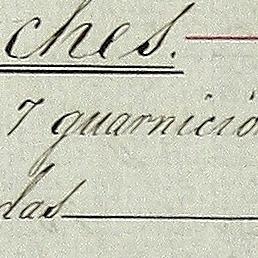 ches.
7 guarnició
das